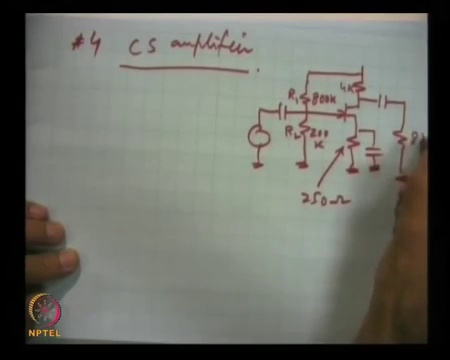 #4 CS amplifier
4K
R1 800K
R2 200
K
8
250Ω
NPTEL